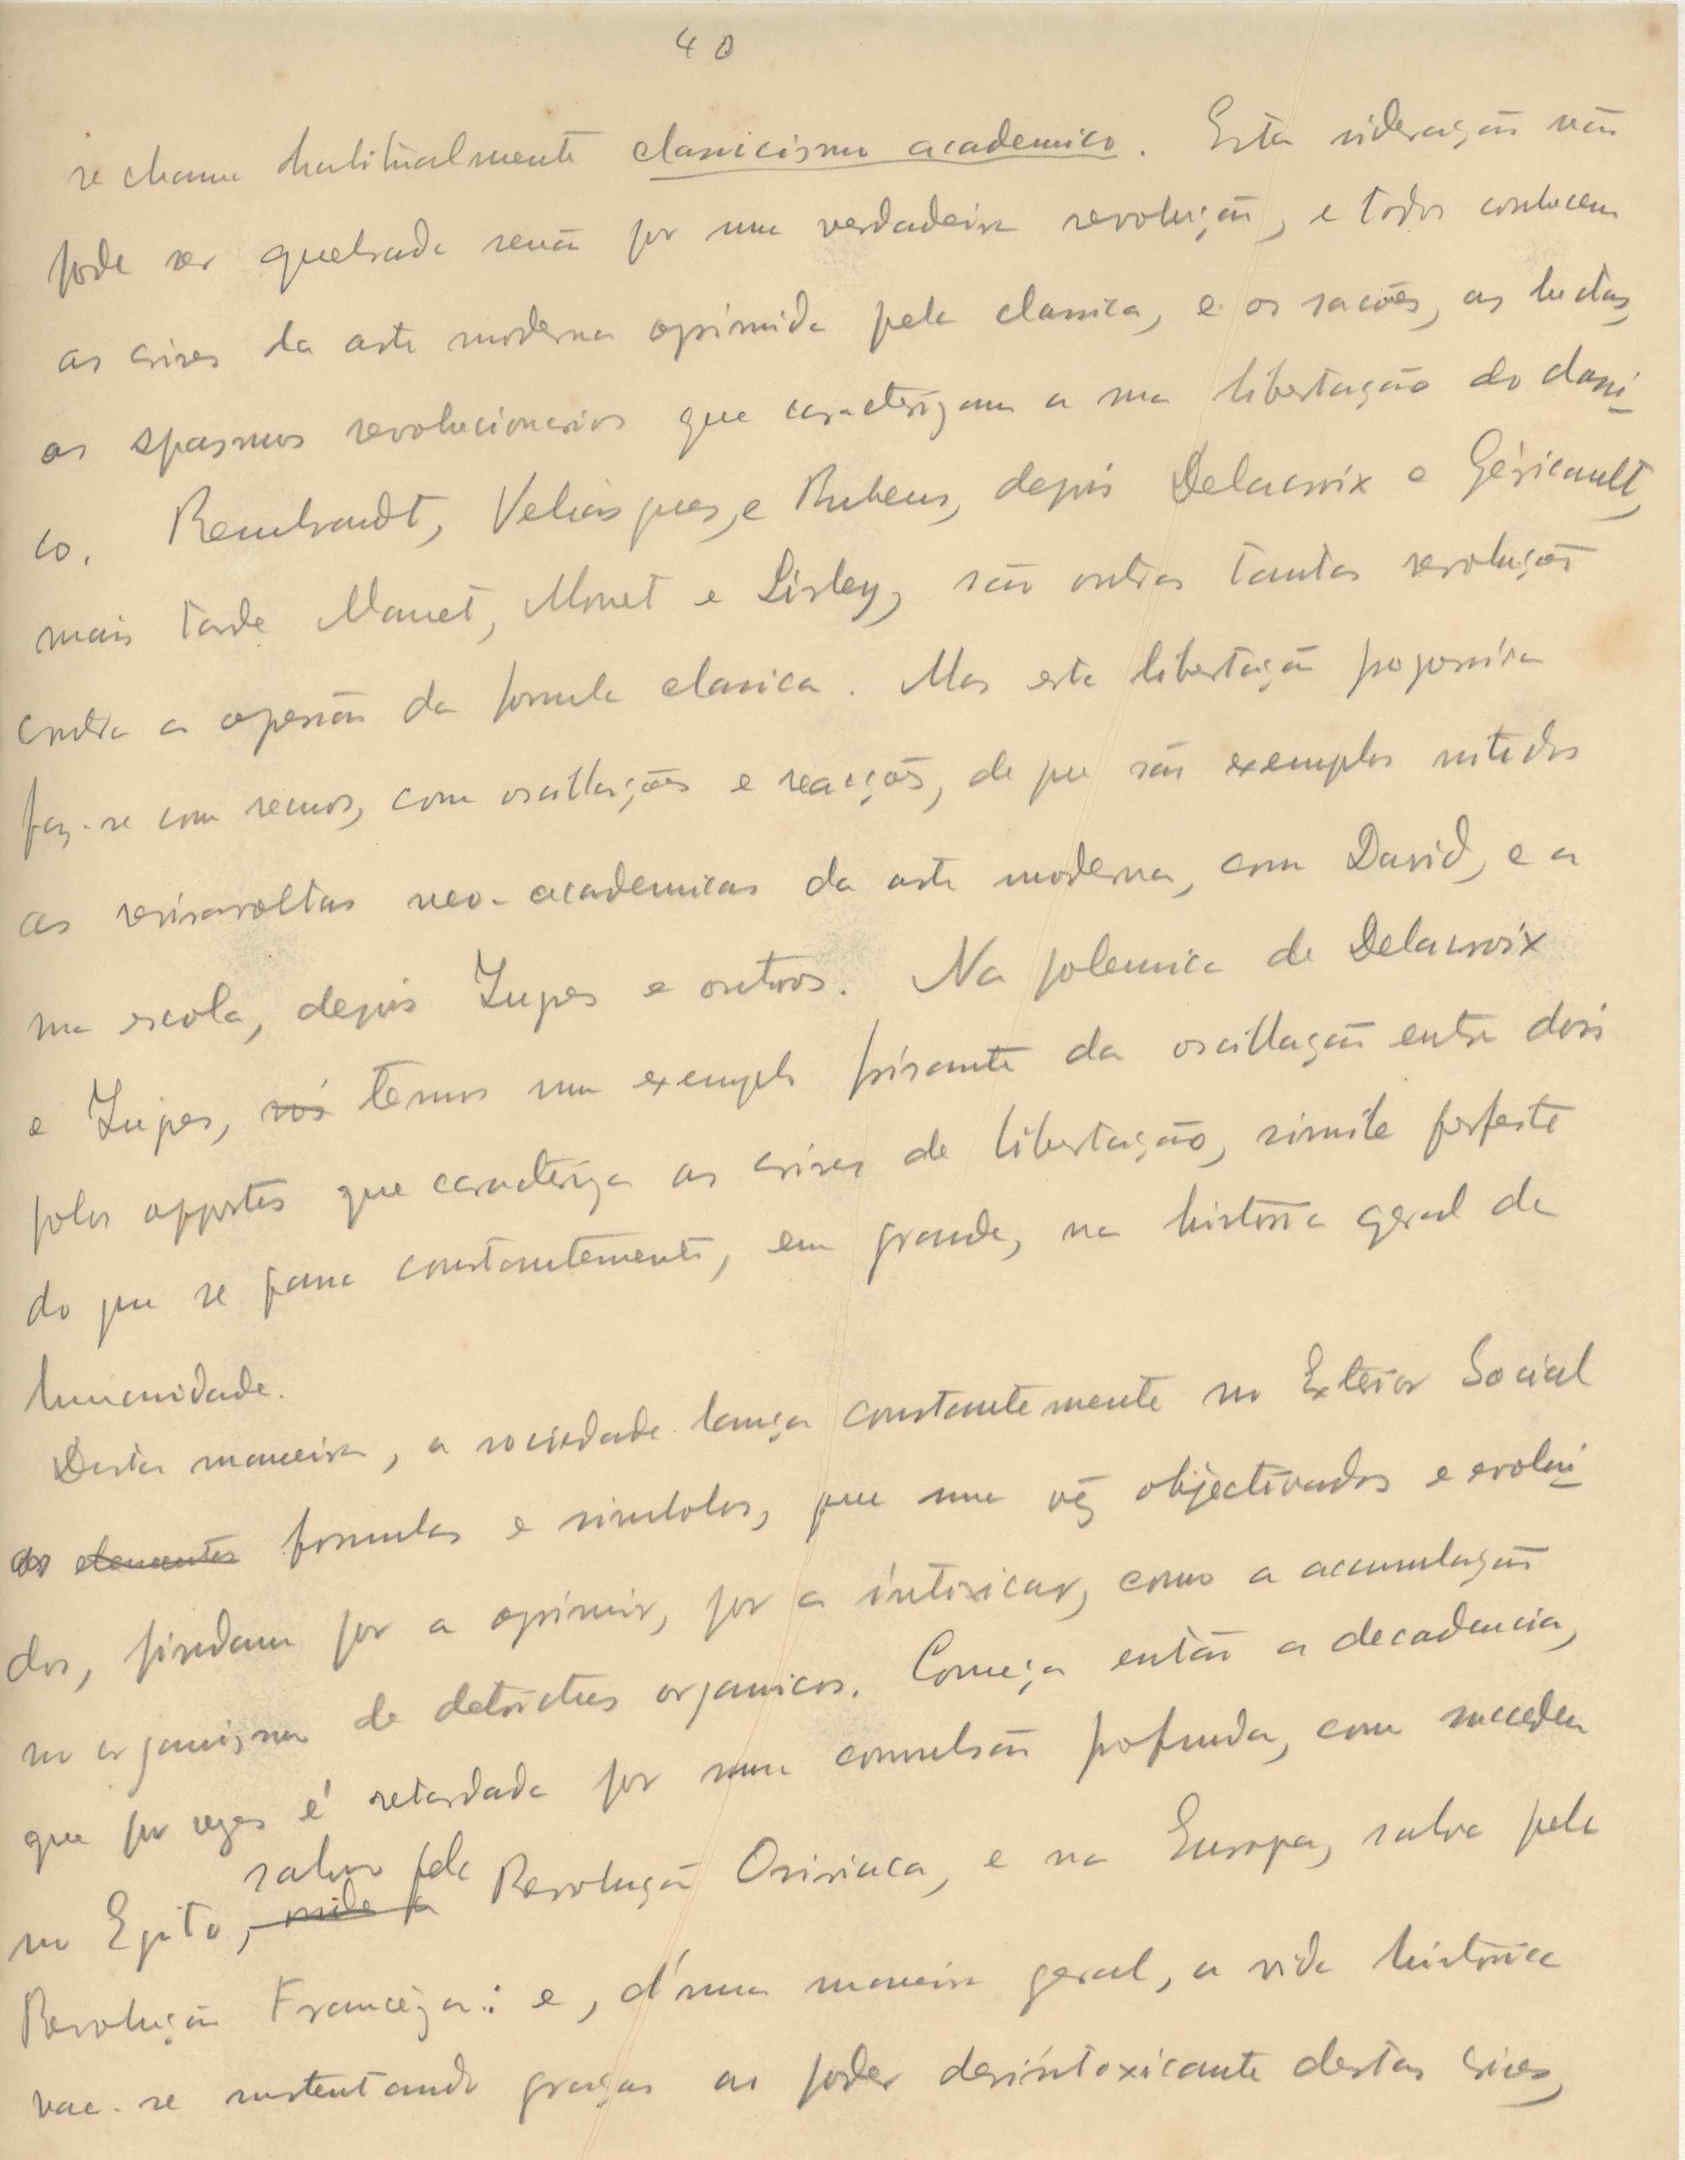 40
se chama habitualmente classicismo academico. Esta sideração não
pode ser quebrada senão por uma verdadeira revolução, e todos conhecem
as crises da arte moderna oprimida pela classica, e os sacões, as luctas,
os spasmos revolucionarios que caracterizam a sua libertação do classi-
co. Rembrandt, Velásques, e Rubens, depois Delacroix e Géricault,
mais tarde Manet, Monet e Sisley, são outras tantas revoluções
contra a opressão da formula classica. Mas esta libertação progressiva
faz-se com recuos, com oscillações e reacções, de que são exemplos nitidos
as reviravoltas neo-academicas da arte moderna, com David, e a
sua escola, depois Ingres e outros. Na polemica de Delacroix
e Ingres, nós temos um exemplo frisante da oscillação entre dois
polos oppostos que caracteriza as crises de libertação, simile perfeito
do que se passa constantemente, em grande, na historia geral da
humanidade.
Desta maneira, a sociedade lança constantemente no Exterior Social
elementos formulas e simbolos, que uma vêz objectivados e evolui-
dos, findam por a oprimir, por a intoxicar, como a accumulação
no organismo de detrictus organicos. Começa então a decadencia,
que por vezes é retardada por uma convulsão profunda, como succedeu
no Egito, salvo pela Revolução Osiriaca, e na Europa, salva pela
Revolução Francêza: e, d'uma maneira geral, a vida historica
vae-se sustentando graças ao poder desintoxicante destas crises,